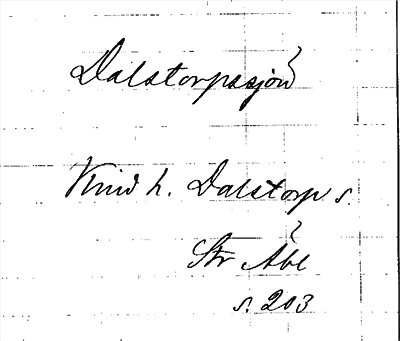 Dalstorpssjön
Kind h. Dalstorp s.
Str Åbl
s. 203